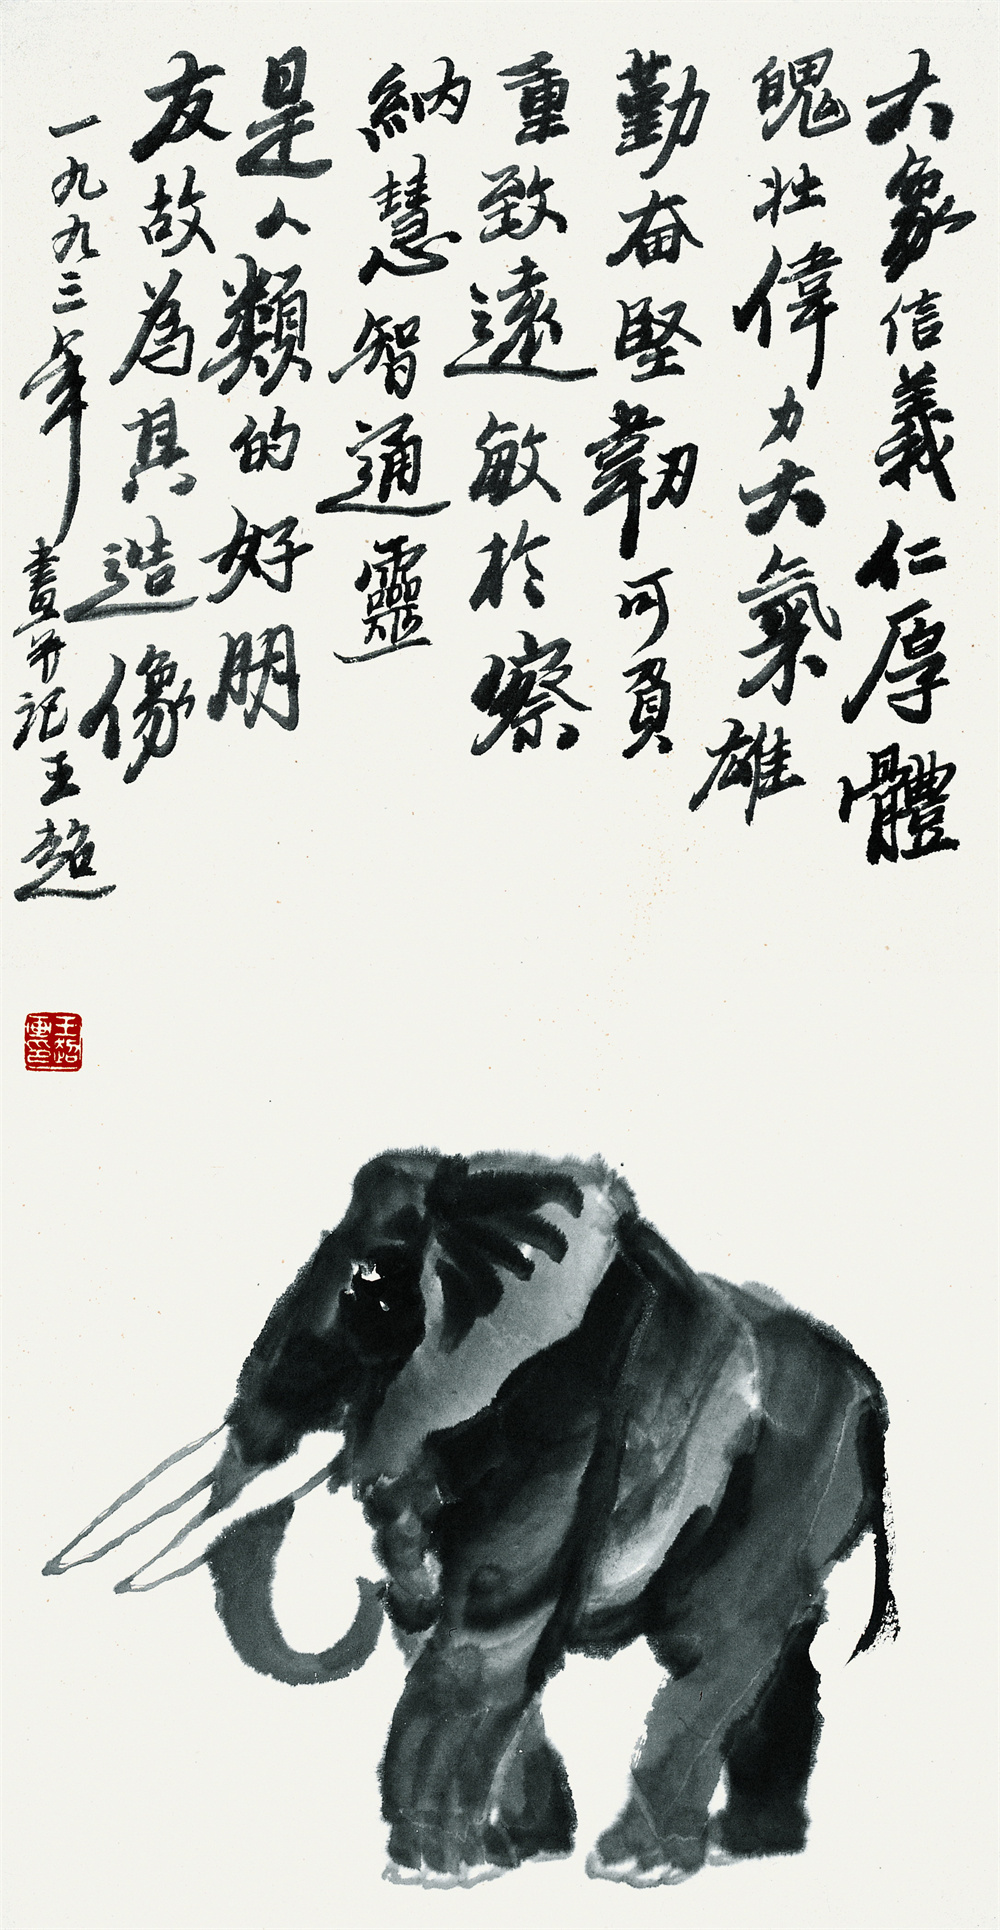 大象信義仁厚體
魄壯偉力大氣雄
勤奋堅韌可負
重致遠敏於察
納慧智通靈
是人類的好朋
友故為其造像
一九九三年畫并記王超
王超畫印